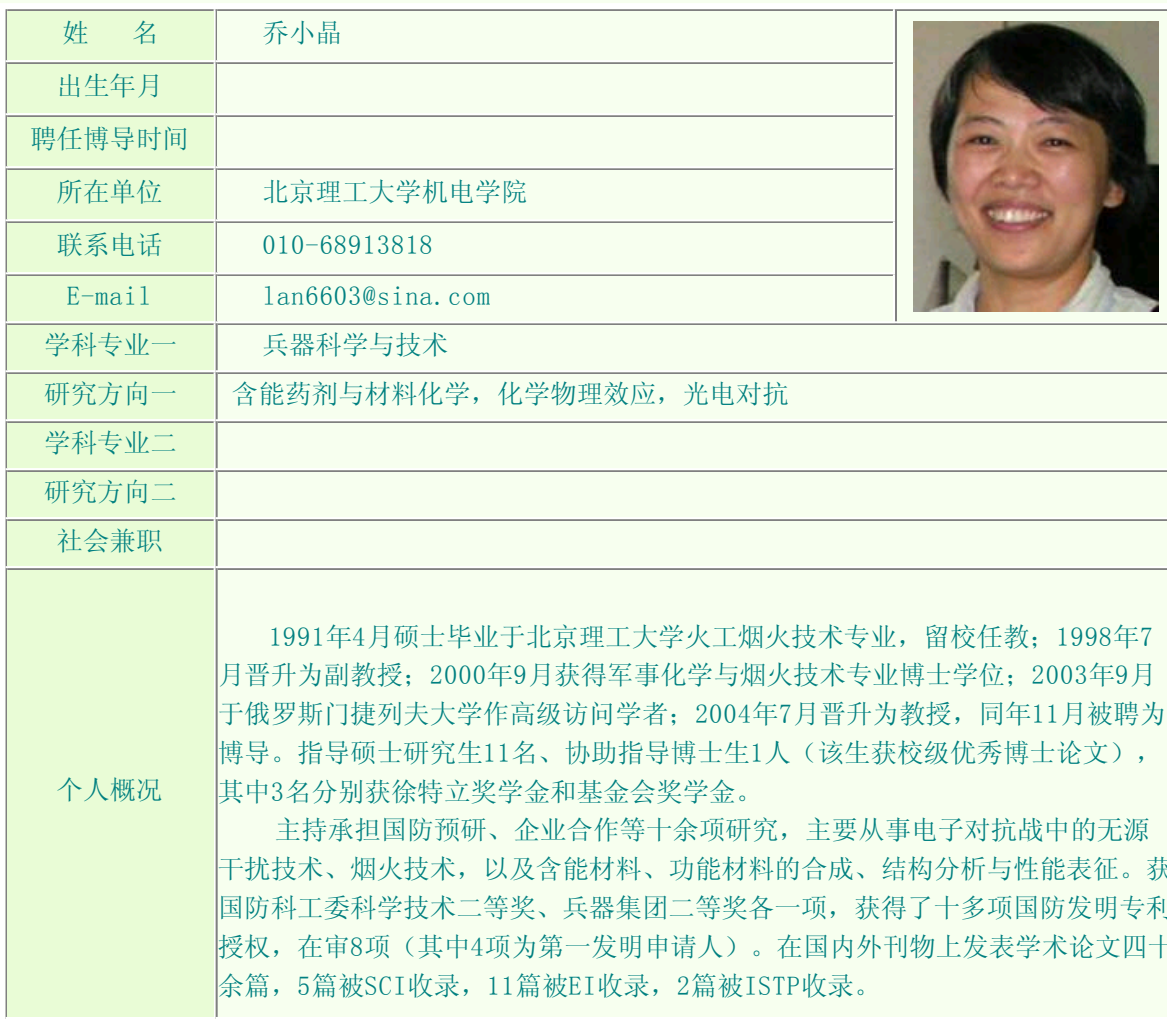 姓 名 乔小晶
出生年月
聘任博导时间
所在单位 北京理工大学机电学院
联系电话 010-68913818
E-mail lan6603@sina.com
学科专业一 兵器科学与技术
研究方向一 含能药剂与材料化学，化学物理效应，光电对抗
学科专业二
研究方向二
社会兼职
个人概况
1991年4月硕士毕业于北京理工大学火工烟火技术专业，留校任教；1998年7
月晋升为副教授；2000年9月获得军事化学与烟火技术专业博士学位；2003年9月
于俄罗斯门捷列夫大学作高级访问学者；2004年7月晋升为教授，同年11月被聘为
博导。指导硕士研究生11名、协助指导博士生1人（该生获校级优秀博士论文），
其中3名分别获徐特立奖学金和基金会奖学金。
主持承担国防预研、企业合作等十余项研究，主要从事电子对抗战中的无源
干扰技术、烟火技术，以及含能材料、功能材料的合成、结构分析与性能表征。获
国防科工委科学技术二等奖、兵器集团二等奖各一项，获得了十多项国防发明专利
授权，在审8项（其中4项为第一发明申请人）。在国内外刊物上发表学术论文四十
余篇，5篇被SCI收录，11篇被EI收录，2篇被ISTP收录。